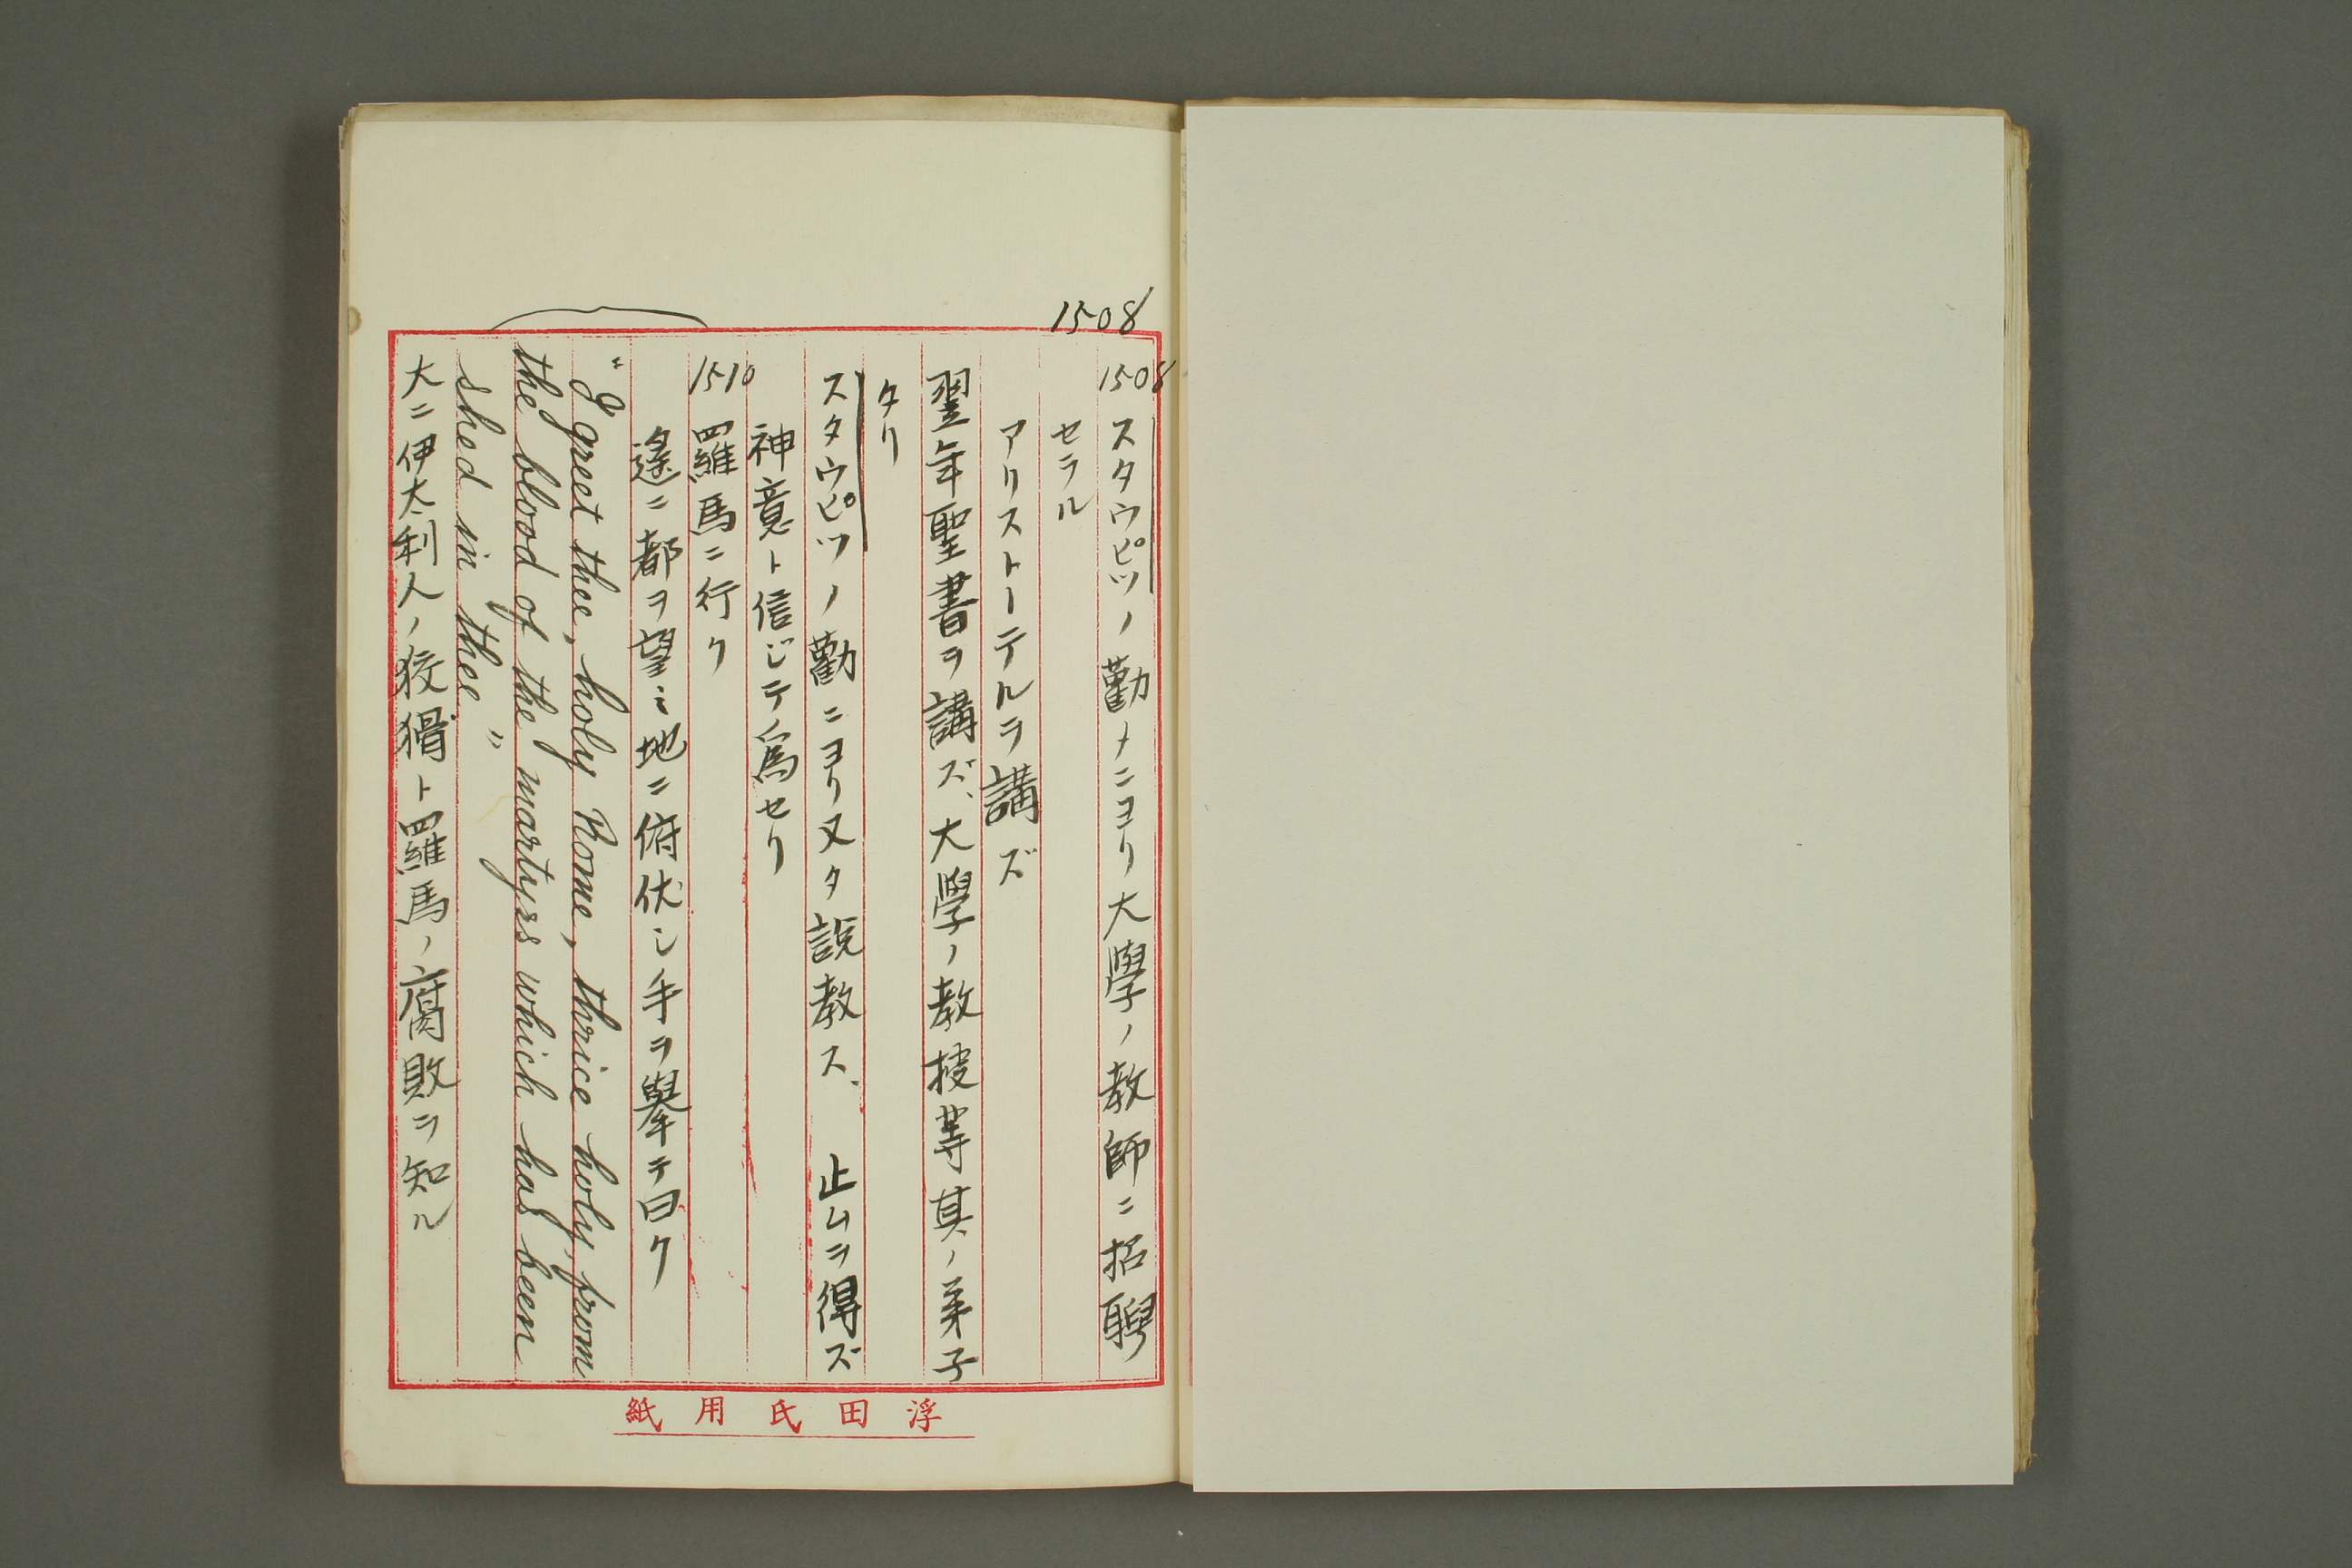 1508
1508 スタウピツノ勸メニヨリ大學ノ教師ニ招聘
セラル
アリストーテルヲ講ズ
翌年聖書ヲ講ズ、大學ノ教授等其ノ弟子
タリ
スタウピツノ勸ニヨリ又タ説教ス、止ムヲ得ズ
神意ト信ジテ爲セリ
1510 羅馬ニ行ク
遙ニ都ヲ望ミ地ニ俯伏シ手ヲ擧テ曰ク
"I greet thee, holy Rome, thrice holy, from
the blood of the martyrs which has been
shed in thee"
大ニ伊太利人ノ狡猾ト羅馬ノ腐敗ヲ知ル
浮田氏用紙